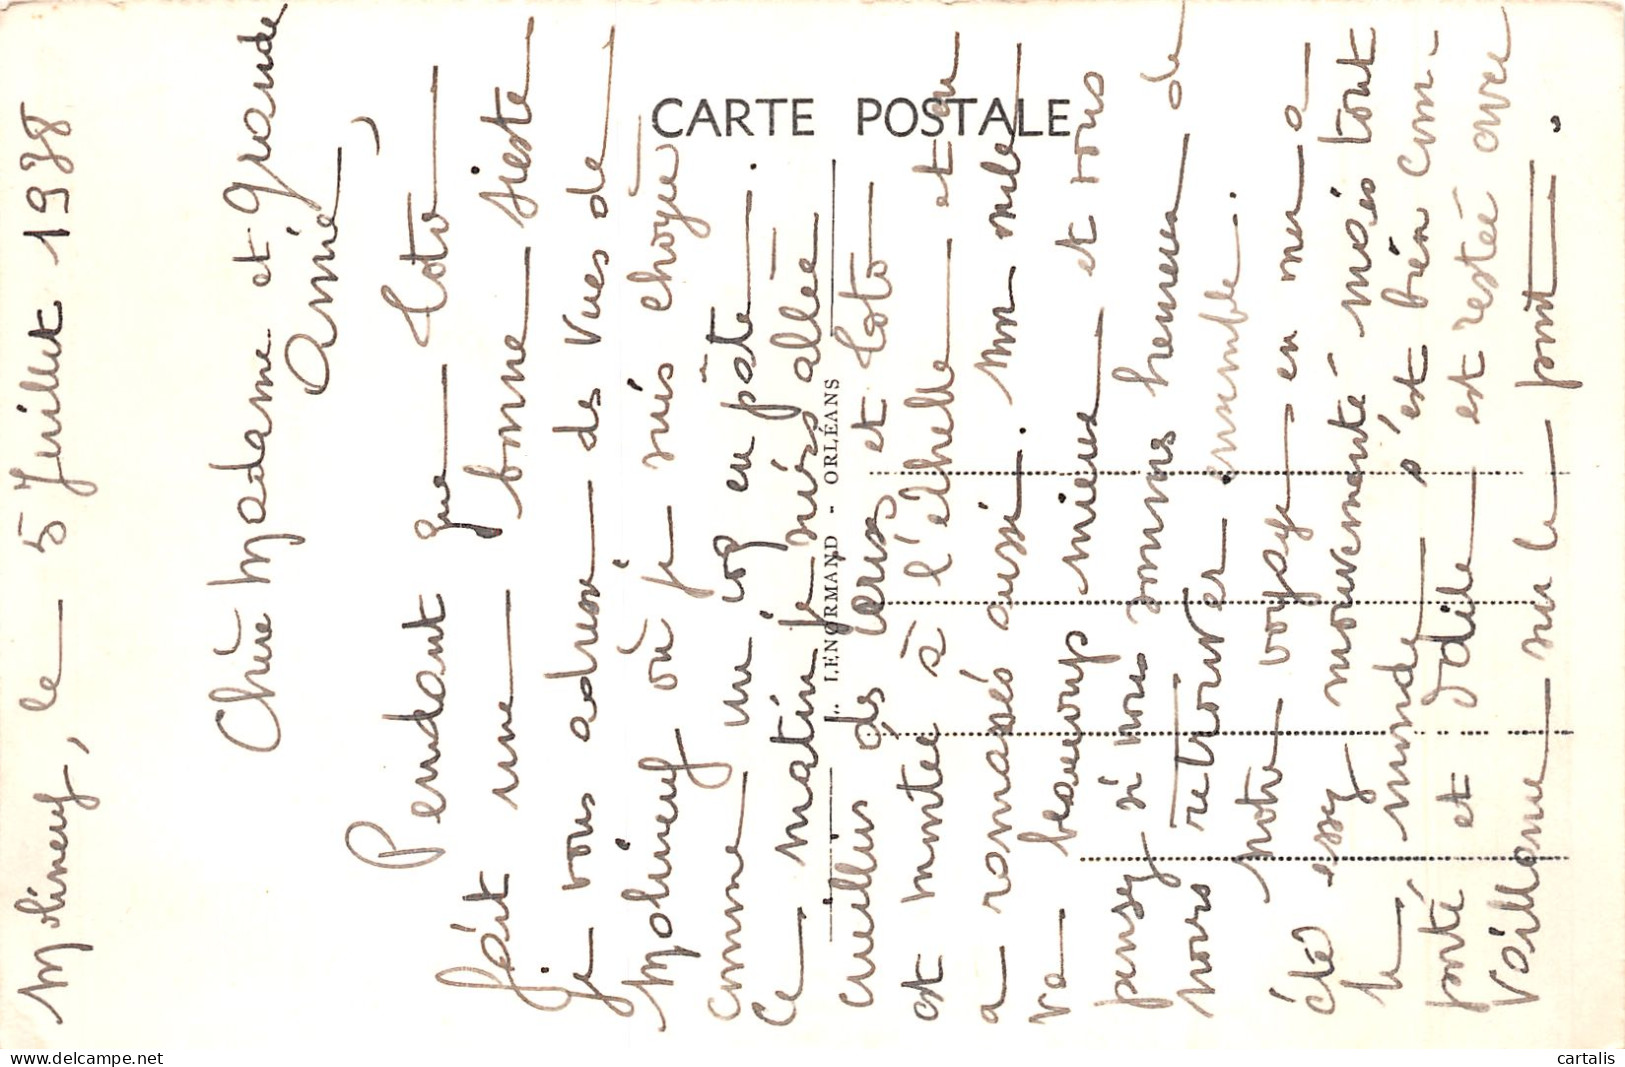 Molineuf, le 5 Juillet 1938
Chère Madame et Grande
Amie,
Pendant que Toto
fait une bonne sieste
je vous adresse des vues de
Molineuf où je suis choyée
comme un coq en pâte.
Ce matin je suis allée
cueillir des cerises et Toto
est montée à l'échelle et en
a ramassés aussi. Mon mule
va beaucoup mieux et vous
pensez si nous sommes heureux de
nous retrouver ensemble.
Notre voyage en mer a
été assez mouvementé mais tout
le monde s'est bien com-
porté et Odile est restée avec
Vaillance sur le pont.
CARTE POSTALE
LENORMAND - ORLÉANS
delcampe.net
cartalis